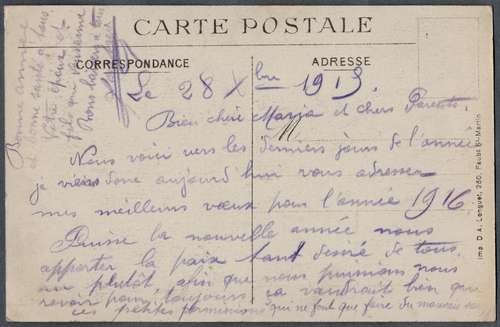 CARTE POSTALE
CORRESPONDANCE
ADRESSE
Le 28 Xbre 1915
Bien chère Maria et chers Parents.
Nous voici vers les derniers jours de l'année
je viens donc aujourd'hui vous adresser
mes meilleurs vœux pour l'année 1916
Puisse la nouvelle année nous
apporter la paix tant désiré de tous.
au plutôt, afin que nous puissions nous
revoir pour toujours ça vaudrait bien que
ces petites permissions qui ne font que faire du mauvais
Bonne année
et bonne santé à tous
époux et
fils qui
Bons baisers à
Imp. D. A. Longuet, 250, Faubg St-Martin